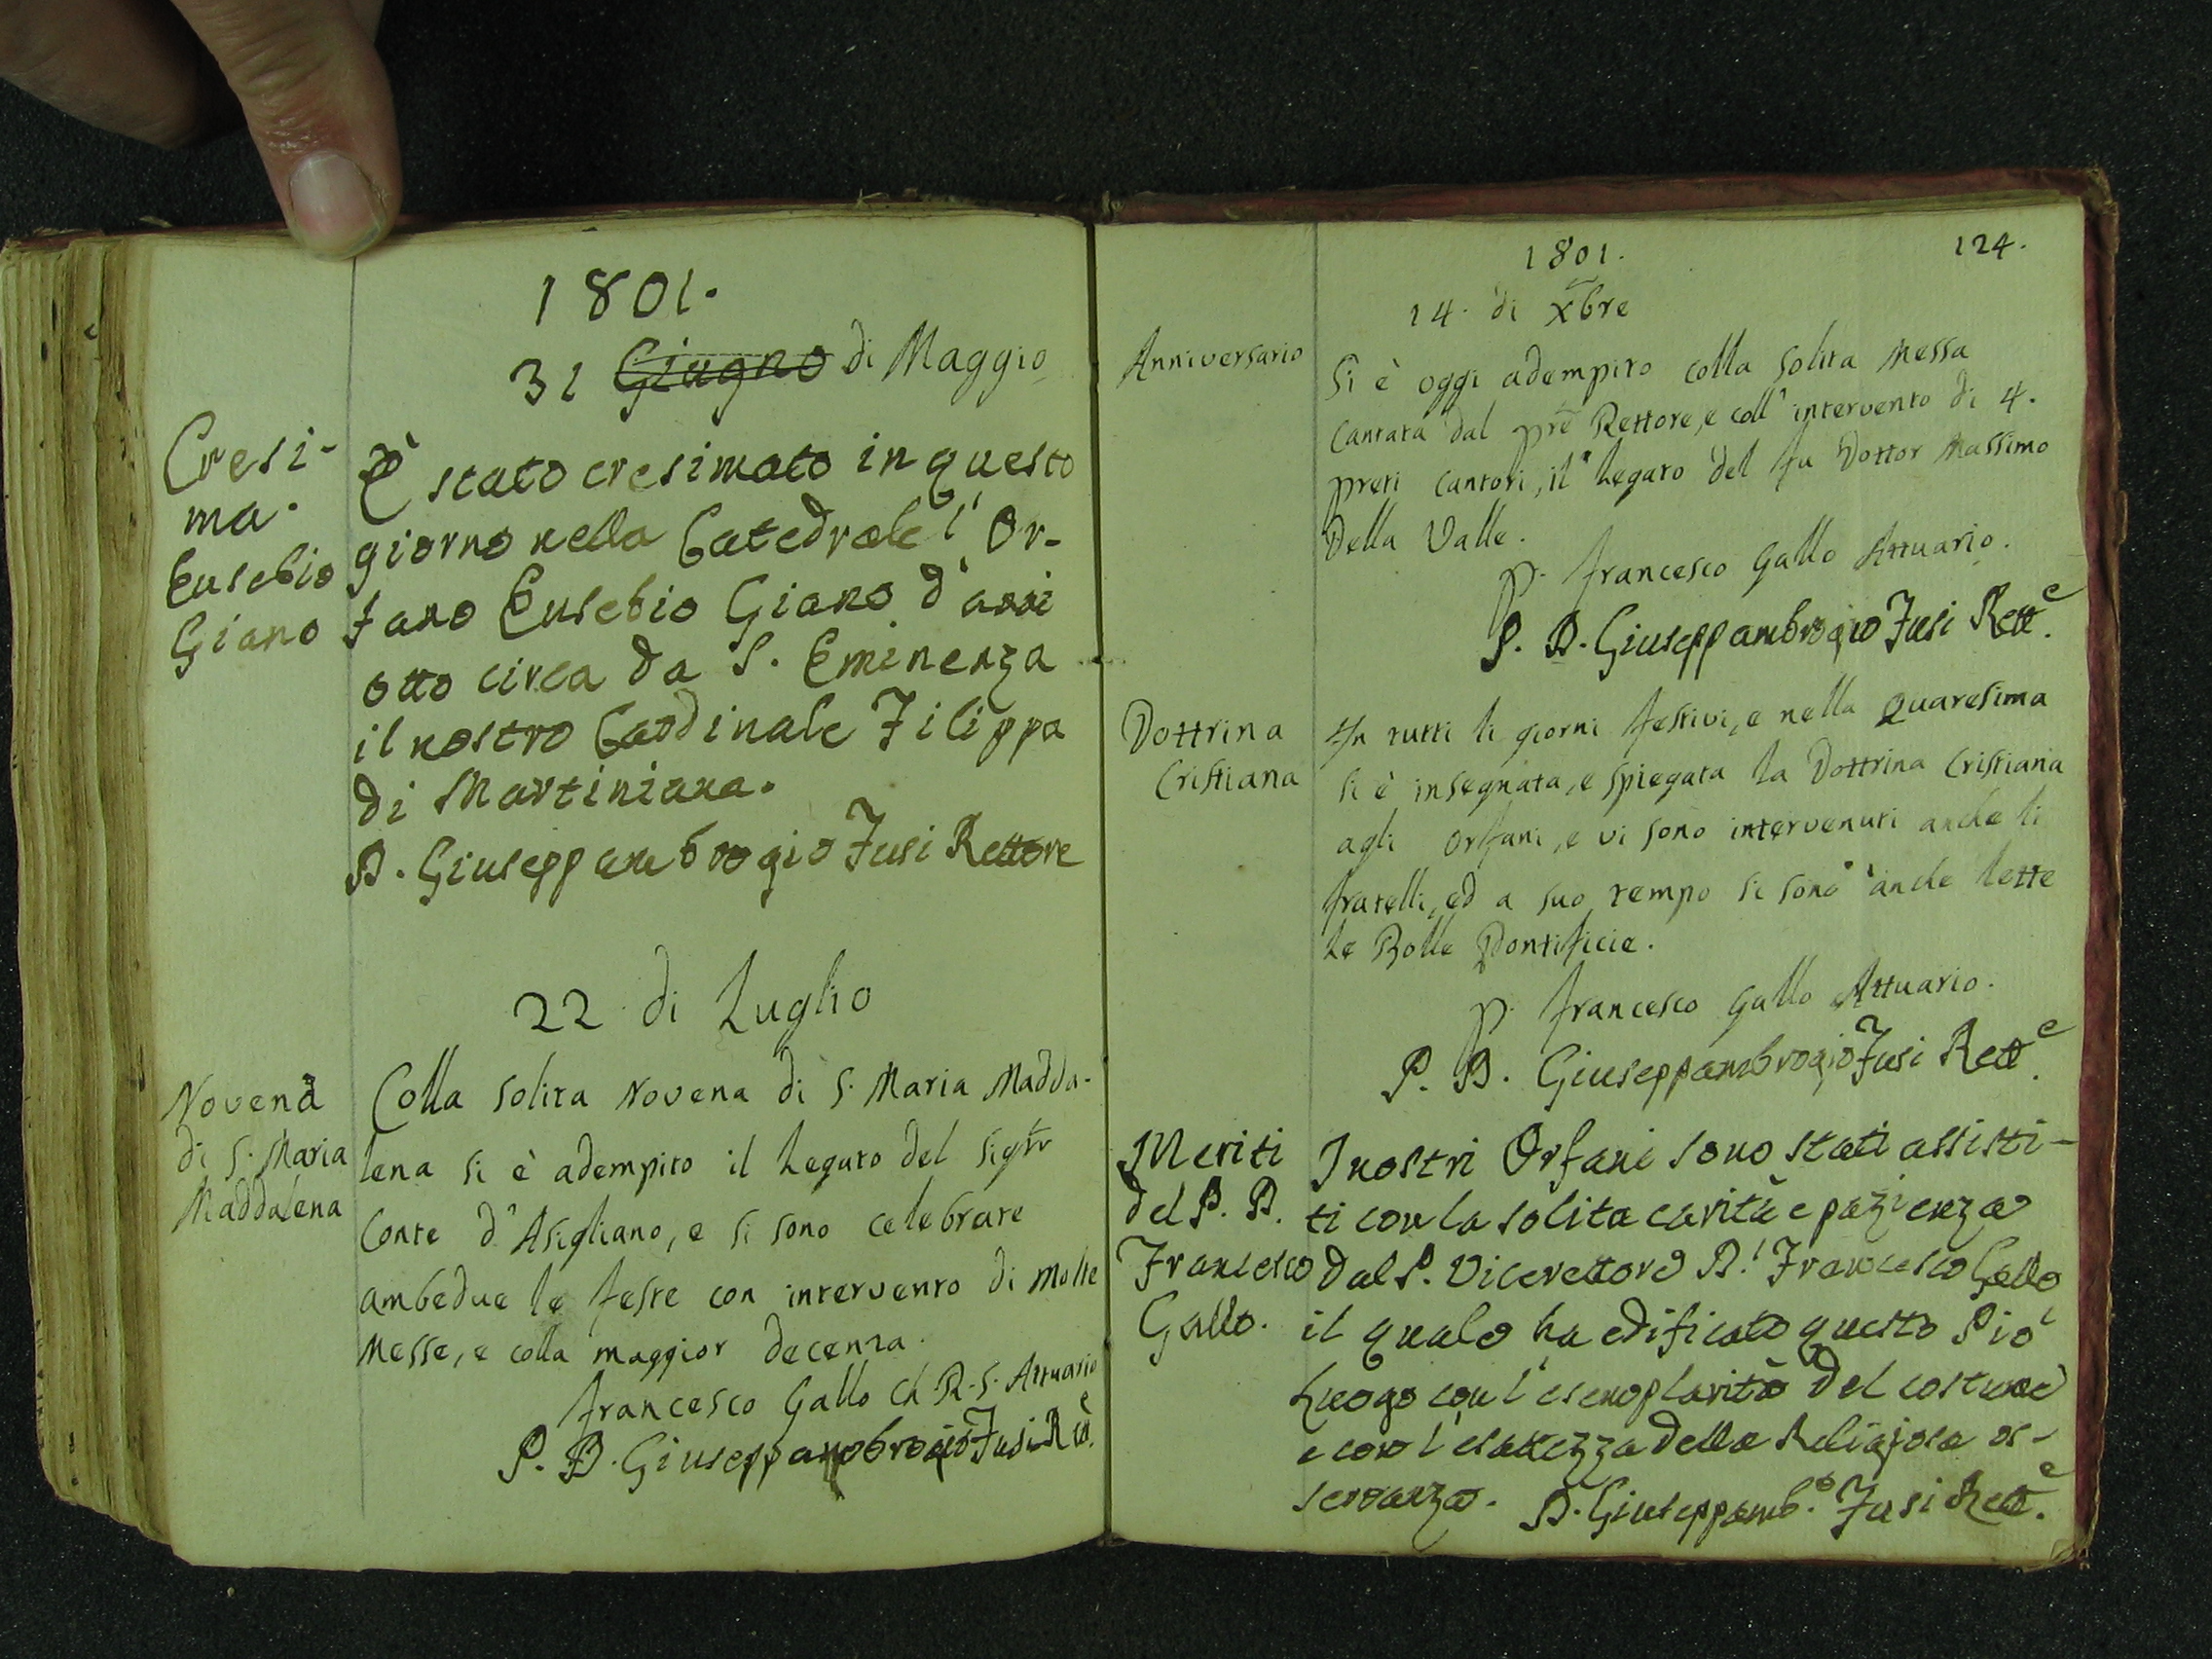 1801.
31 Giugno di Maggio
Cresi-
ma.
Eusebio
Giano
È stato cresimato in questo
giorno nella Catedrale l'Or-
fano Eusebio Giano d'anni
otto circa da S. Eminenza
il nostro Cardinale Filippa
di Martiniana.
D. Giuseppambrogio Fusi Rettore
22 di Luglio
Novena
di S. Maria
Maddalena
Colla solita Novena di S. Maria Madda-
lena si è adempito il Legato del Sigr
Conte d'Asigliano, e si sono celebrate
ambedue le feste con intervento di molte
Messe, e colla maggior decenza.
Francesco Gallo Ch. R. S. Attuario
P. D. Giuseppambrogio Fusi
1801.
124.
14. di Xbre
Anniversario
Si è oggi adempito colla solita Messa
Cantata dal pre Rettore, e coll'intervento di 4.
preti Cantori, il Legato del fu Dottor Massimo
Della Valle.
p. Francesco Gallo Attuario.
P. D. Giuseppambrogio Fusi Rette.
Dottrina
Cristiana
In tutti li giorni festivi, e nella Quaresima
si è insegnata, e spiegata la Dottrina Cristiana
agli Orfani, e vi sono intervenuti anche li
fratelli, ed a suo tempo si sono anche lette
le Bolle Pontificie.
p. Francesco Gallo Attuario.
P. D. Giuseppambrogio Fusi Rette.
Meriti
del P. D.
Francesco
Gallo.
I nostri Orfani sono stati assisti-
ti con la solita carità e pazienza
dal P. Vicerettore D. Francesco Gallo
il quale ha edificato questo Pio
Luogo con l'esemplarità del costume
e con l'esattezza della Religiosa os-
servanza. D. Giuseppamb.o Fusi Rette.